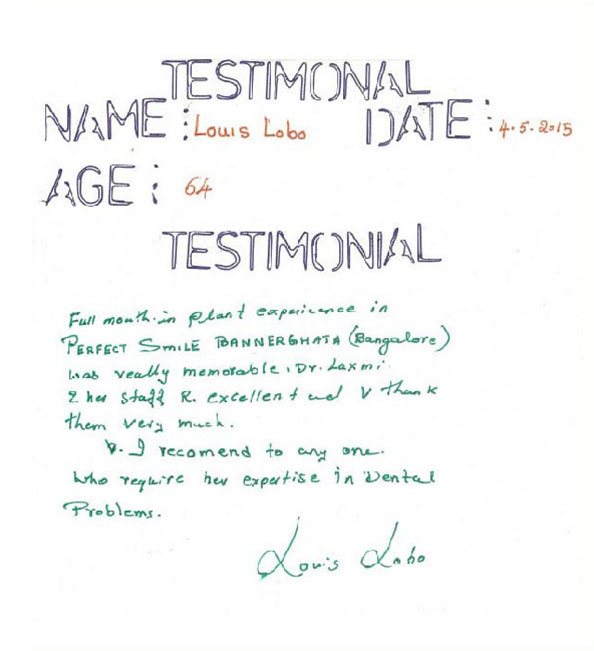 TESTIMONAL
NAME : Louis Lobo DATE : 4.5.2015
AGE : 64
TESTIMONIAL
Full mouth in plant experience in
PERFECT SMILE BANNERGHATA (Bangalore)
was really memorable. Dr. Laxmi
& her staff R. excellent and V thank
them very much.
I recomend to any one.
who require her expertise in Dental
Problems.
Louis Lobo